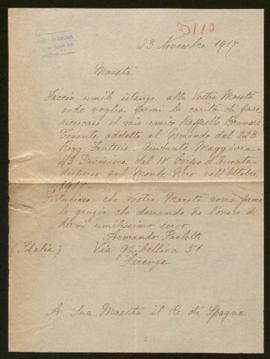 23 Novembre 1917
Maestà
Faccio umile istanza alla Vostra Maestà
onde voglia farmi la carità di fare
ricercare il mio amico Raffaello
Tenente addetto al Comando del 223
Regg Fanteria. Aiutante Maggiore.
49 Divisione del IV Corpo d'Armata
disperso sul Monte Nero nell'Ottobre
1917.
Fiducioso che Vostra Maestà vorrà farmi
la grazia che domando ho l'onore di
dirmi umilissimo servo
Armando Paoletti
(Italia) Via Ghibellina 51
Firenze
A Sua Maestà il Re di Spagna